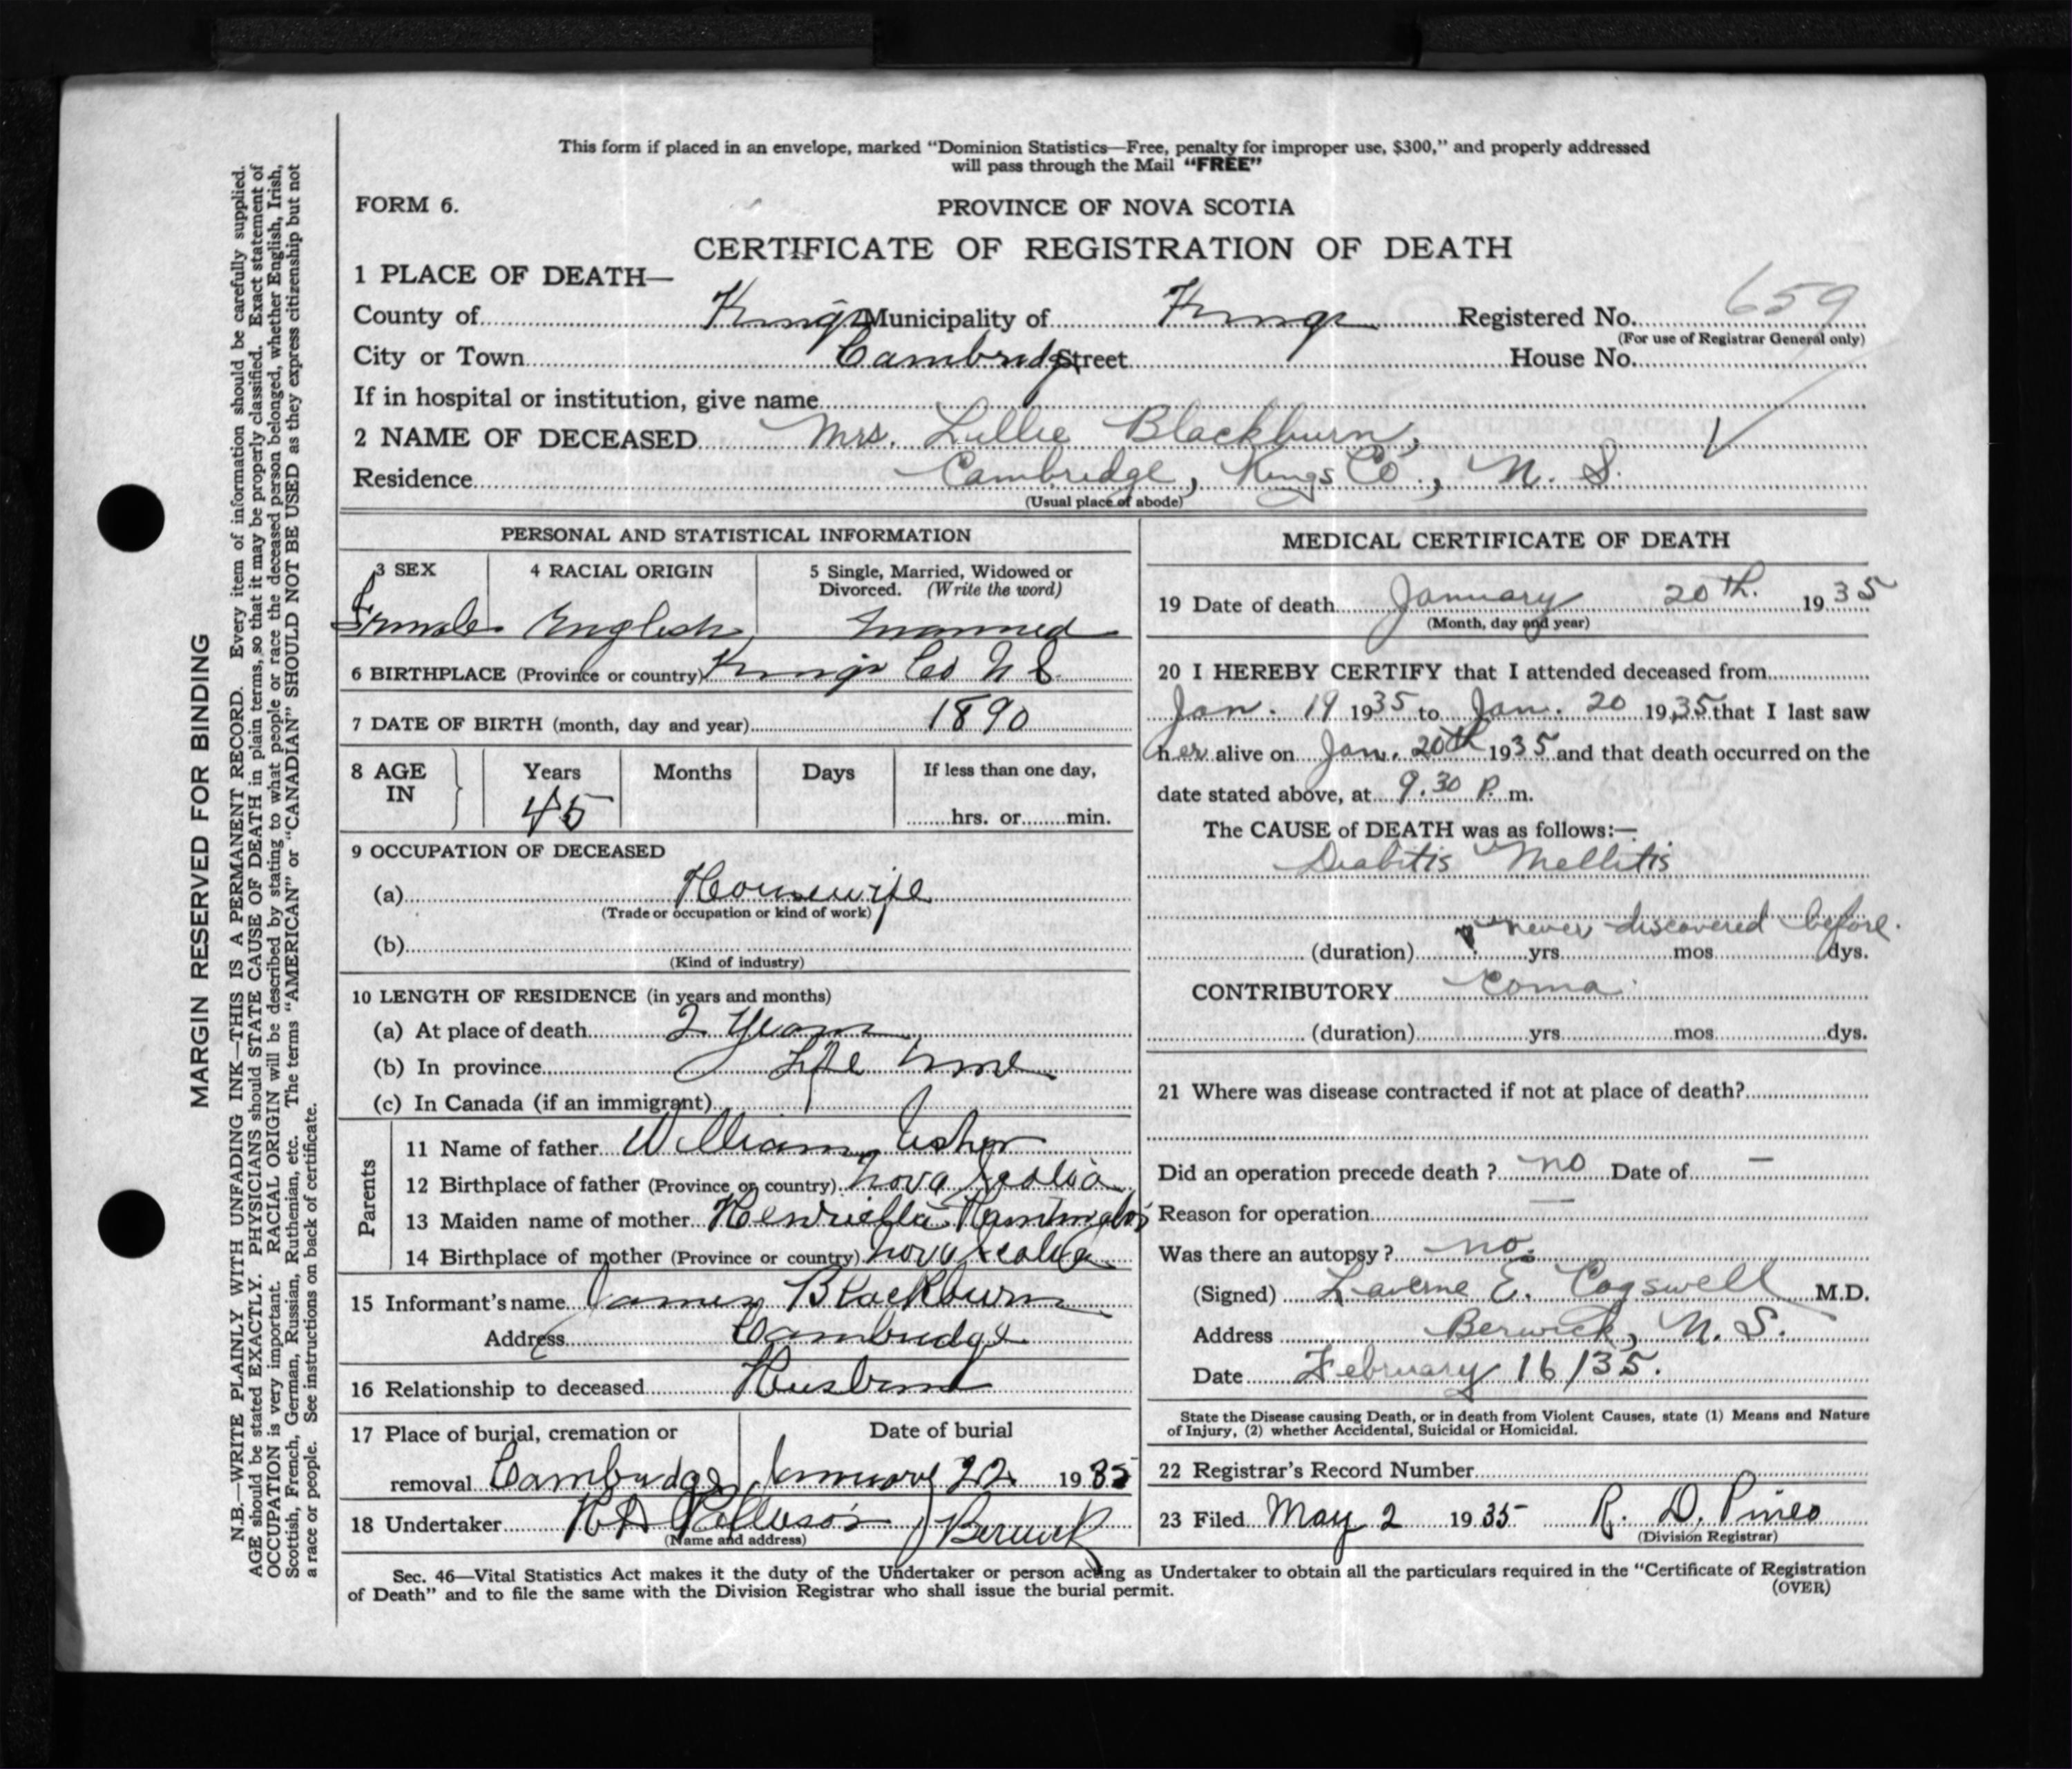 This form if placed in an envelope, marked "Dominion Statistics—Free, penalty for improper use, $300," and properly addressed
will pass through the Mail "FREE"
FORM 6.
PROVINCE OF NOVA SCOTIA
CERTIFICATE OF REGISTRATION OF DEATH
1 PLACE OF DEATH—
County of Kings Municipality of Kings Registered No. 659
(For use of Registrar General only)
City or Town Cambridge Street House No.
If in hospital or institution, give name
2 NAME OF DECEASED Mrs. Lillie Blackburn,
Residence Cambridge, Kings Co., N. S.
(Usual place of abode)
PERSONAL AND STATISTICAL INFORMATION
3 SEX 4 RACIAL ORIGIN 5 Single, Married, Widowed or
Divorced. (Write the word)
Female English Married
6 BIRTHPLACE (Province or country) Kings Co N S
7 DATE OF BIRTH (month, day and year) 1890
8 AGE IN Years Months Days If less than one day,
45 hrs. or min.
9 OCCUPATION OF DECEASED
(a) Housewife
(Trade or occupation or kind of work)
(b)
(Kind of industry)
10 LENGTH OF RESIDENCE (in years and months)
(a) At place of death 2 Years
(b) In province Life time
(c) In Canada (if an immigrant)
Parents
11 Name of father William Usher
12 Birthplace of father (Province or country) Nova Scotia
13 Maiden name of mother Henrietta
14 Birthplace of mother (Province or country) Nova Scotia
15 Informant's name James Blackburn
Address Cambridge
16 Relationship to deceased Husband
17 Place of burial, cremation or Date of burial
removal Cambridge January 22 1935
18 Undertaker Berwick
(Name and address)
MEDICAL CERTIFICATE OF DEATH
19 Date of death January 20th. 1935
(Month, day and year)
20 I HEREBY CERTIFY that I attended deceased from
Jan. 19 1935 to Jan. 20 1935 that I last saw
her alive on Jan. 20th 1935 and that death occurred on the
date stated above, at 9.30 P. m.
The CAUSE of DEATH was as follows:—
Diabitis Mellitis
never discovered before.
(duration) ? yrs. mos. dys.
CONTRIBUTORY Coma
(duration) yrs. mos. dys.
21 Where was disease contracted if not at place of death?
Did an operation precede death? no Date of —
Reason for operation —
Was there an autopsy? no.
(Signed) Laverne E. Cogswell M.D.
Address Berwick, N. S.
Date February 16/35.
State the Disease causing Death, or in death from Violent Causes, state (1) Means and Nature
of Injury, (2) whether Accidental, Suicidal or Homicidal.
22 Registrar's Record Number
23 Filed May 2 1935 R. D. Pineo
(Division Registrar)
Sec. 46—Vital Statistics Act makes it the duty of the Undertaker or person acting as Undertaker to obtain all the particulars required in the "Certificate of Registration
of Death" and to file the same with the Division Registrar who shall issue the burial permit. (OVER)
MARGIN RESERVED FOR BINDING
N.B.—WRITE PLAINLY WITH UNFADING INK—THIS IS A PERMANENT RECORD. Every item of information should be carefully supplied.
AGE should be stated EXACTLY. PHYSICIANS should STATE CAUSE OF DEATH in plain terms, so that it may be properly classified. Exact statement of
OCCUPATION is very important. RACIAL ORIGIN will be described by stating to what people or race the deceased person belonged, whether English, Irish,
Scottish, French, German, Russian, Ruthenian, etc. The terms "AMERICAN" or "CANADIAN" SHOULD NOT BE USED as they express citizenship but not
a race or people. See instructions on back of certificate.